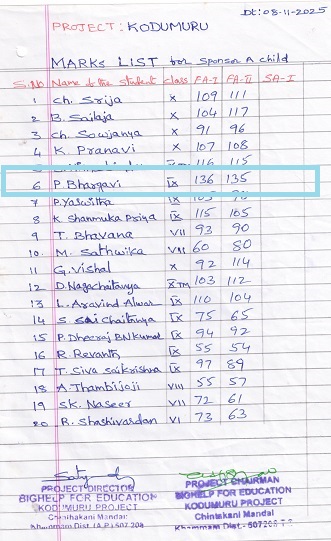 Dt: 08-11-2025
PROJECT: KODUMURU
MARKS LIST for Sponsor A child
S.No Name of the student class FA-I FA-II SA-I
1 Ch. Srija X 109 111
2 B. Sailaja X 104 117
3 Ch. Sowjanya X 91 96
4 K. Pranavi X 107 108
116 115
6 P. Bhargavi IX 136 135
7 P. Yaswitha
8 K Shanmuka Priya IX 115 105
9 T. Bhavana VII 93 90
10. M. Sathwika VII 60 80
11 G. Vishal X 92 114
12 D. Nagachaitanya 103 112
13 L. Aravind Alwar IX 110 104
14 S. Sai Chaitanya IX 75 65
15 P. Dheeraj B.N.Kumar IX 94 92
16 R. Revanth IX 55 54
17 T. Siva Saikrishna IX 97 89
18 A. Thambijoji VIII 55 57
19 SK. Naseer VII 72 61
20 B. Shashivardan VI 73 63
PROJECT DIRECTOR
BIGHELP FOR EDUCATION
KODUMURU PROJECT
Chinthakani Mandal
Khammam Dist. (A.P) 507 208
PROJECT CHAIRMAN
BIGHELP FOR EDUCATION
KODUMURU PROJECT
Chintakani Mandal
Khammam Dist.- 507208